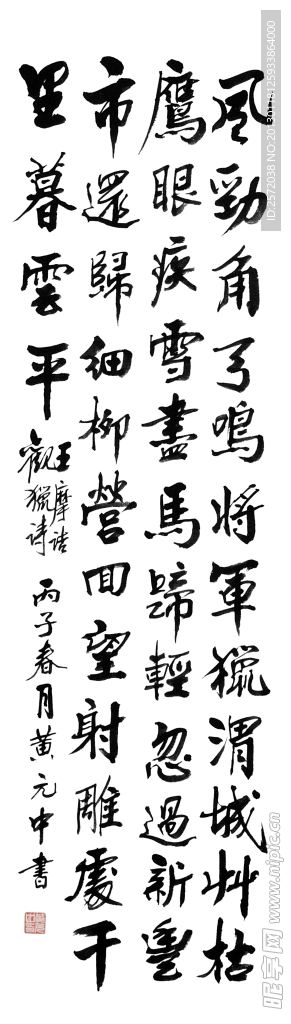 風勁角弓鳴將軍獵渭城艸枯
鷹眼疾雪盡馬蹄輕忽過新豐
市還歸細柳營回望射雕處千
里暮雲平
王摩詰
觀獵詩
丙子春月黃元中書
昵享网 www.nipic.cn